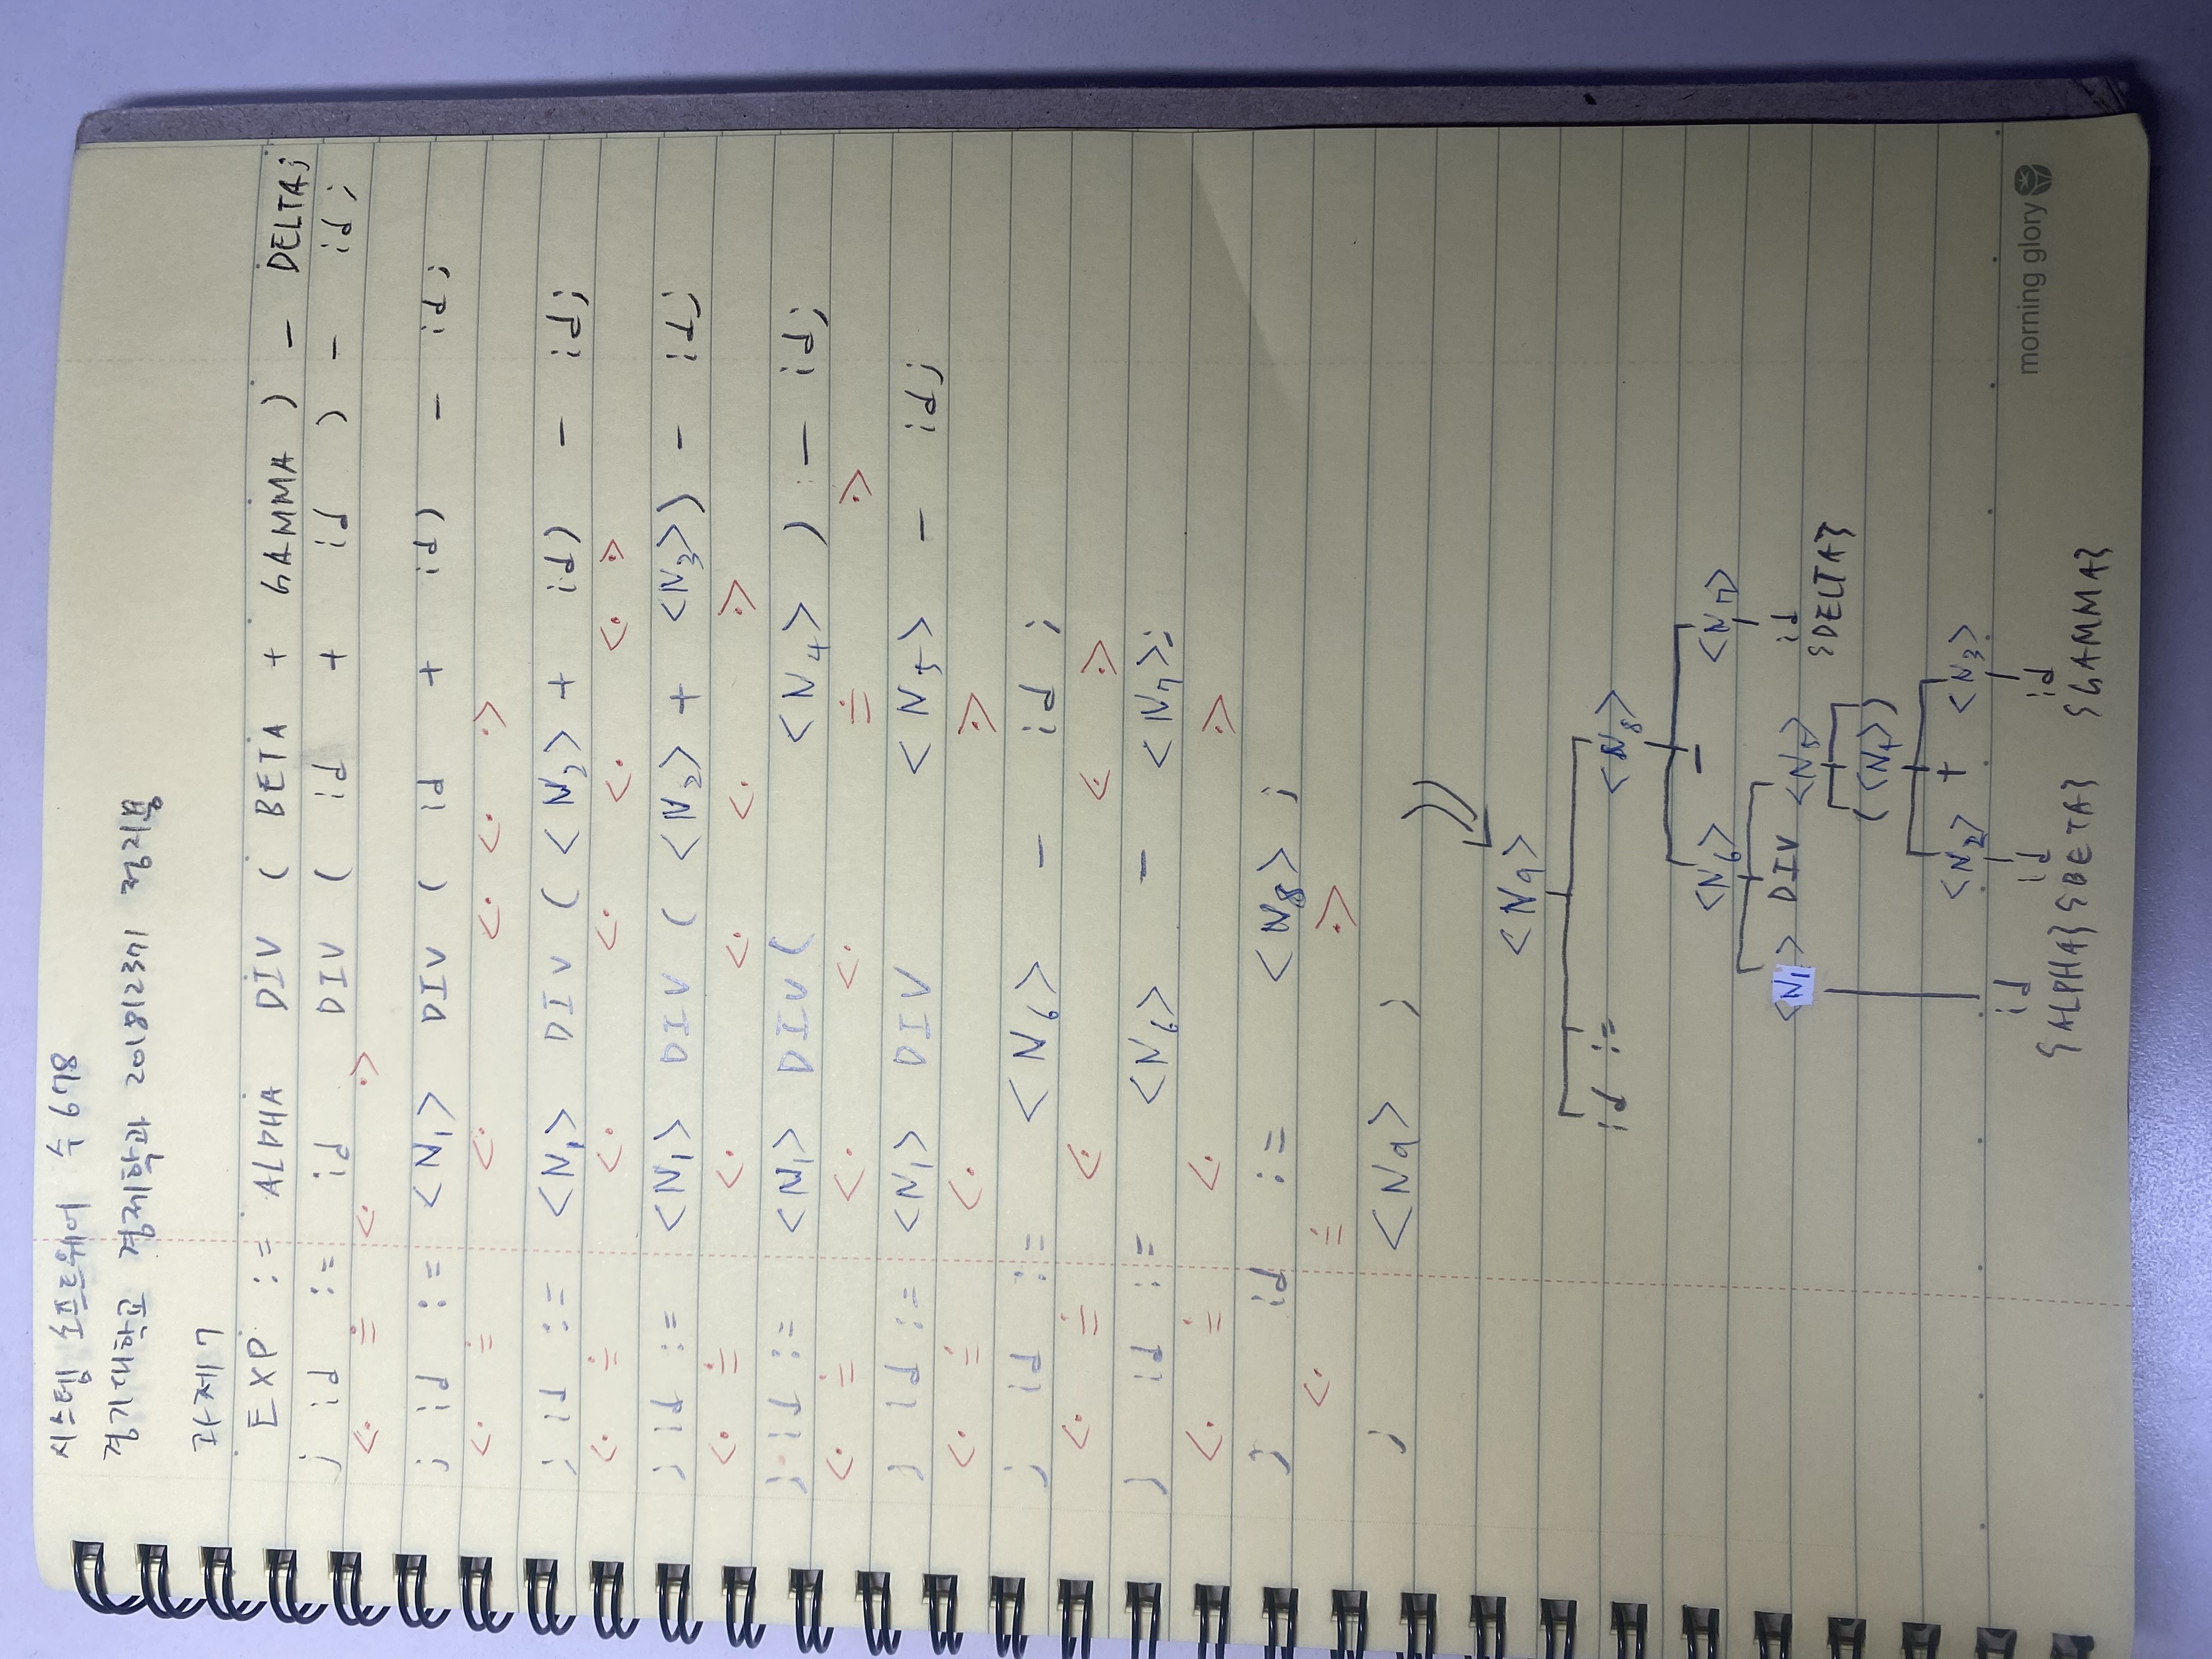 시스템 소프트웨어 수 678
경기대학교 경제학과 201812371 정지용
과제 7
EXP := ALPHA DIV ( BETA + GAMMA ) - DELTA;
; id := id DIV ( id + id ) - id ;
<· ≐ <· ·>
; id := <N1> DIV ( id + id ) - id ;
<· ≐ <· <· <· ·>
; id := <N1> DIV ( <N2> + id ) - id ;
<· ≐ <· <· <· <· ·>
; id := <N1> DIV ( <N2> + <N3> ) - id ;
<· ≐ <· <· <· ·>
; id := <N1> DIV ( <N4> ) - id ;
<· ≐ <· <· ≐ ·>
; id := <N1> DIV <N5> - id ;
<· ≐ <· ·>
; id := <N6> - id ;
<· ≐ <· <· ·>
; id := <N6> - <N7> ;
<· ≐ <· ·>
; id := <N8> ;
<· ≐ ·>
; <N9> ;
<N9>
id := <N8>
<N6> - <N7>
<N1> DIV <N5> id
{DELTA}
( <N4> )
<N2> + <N3>
id id id
{ALPHA} {BETA} {GAMMA}
morning glory